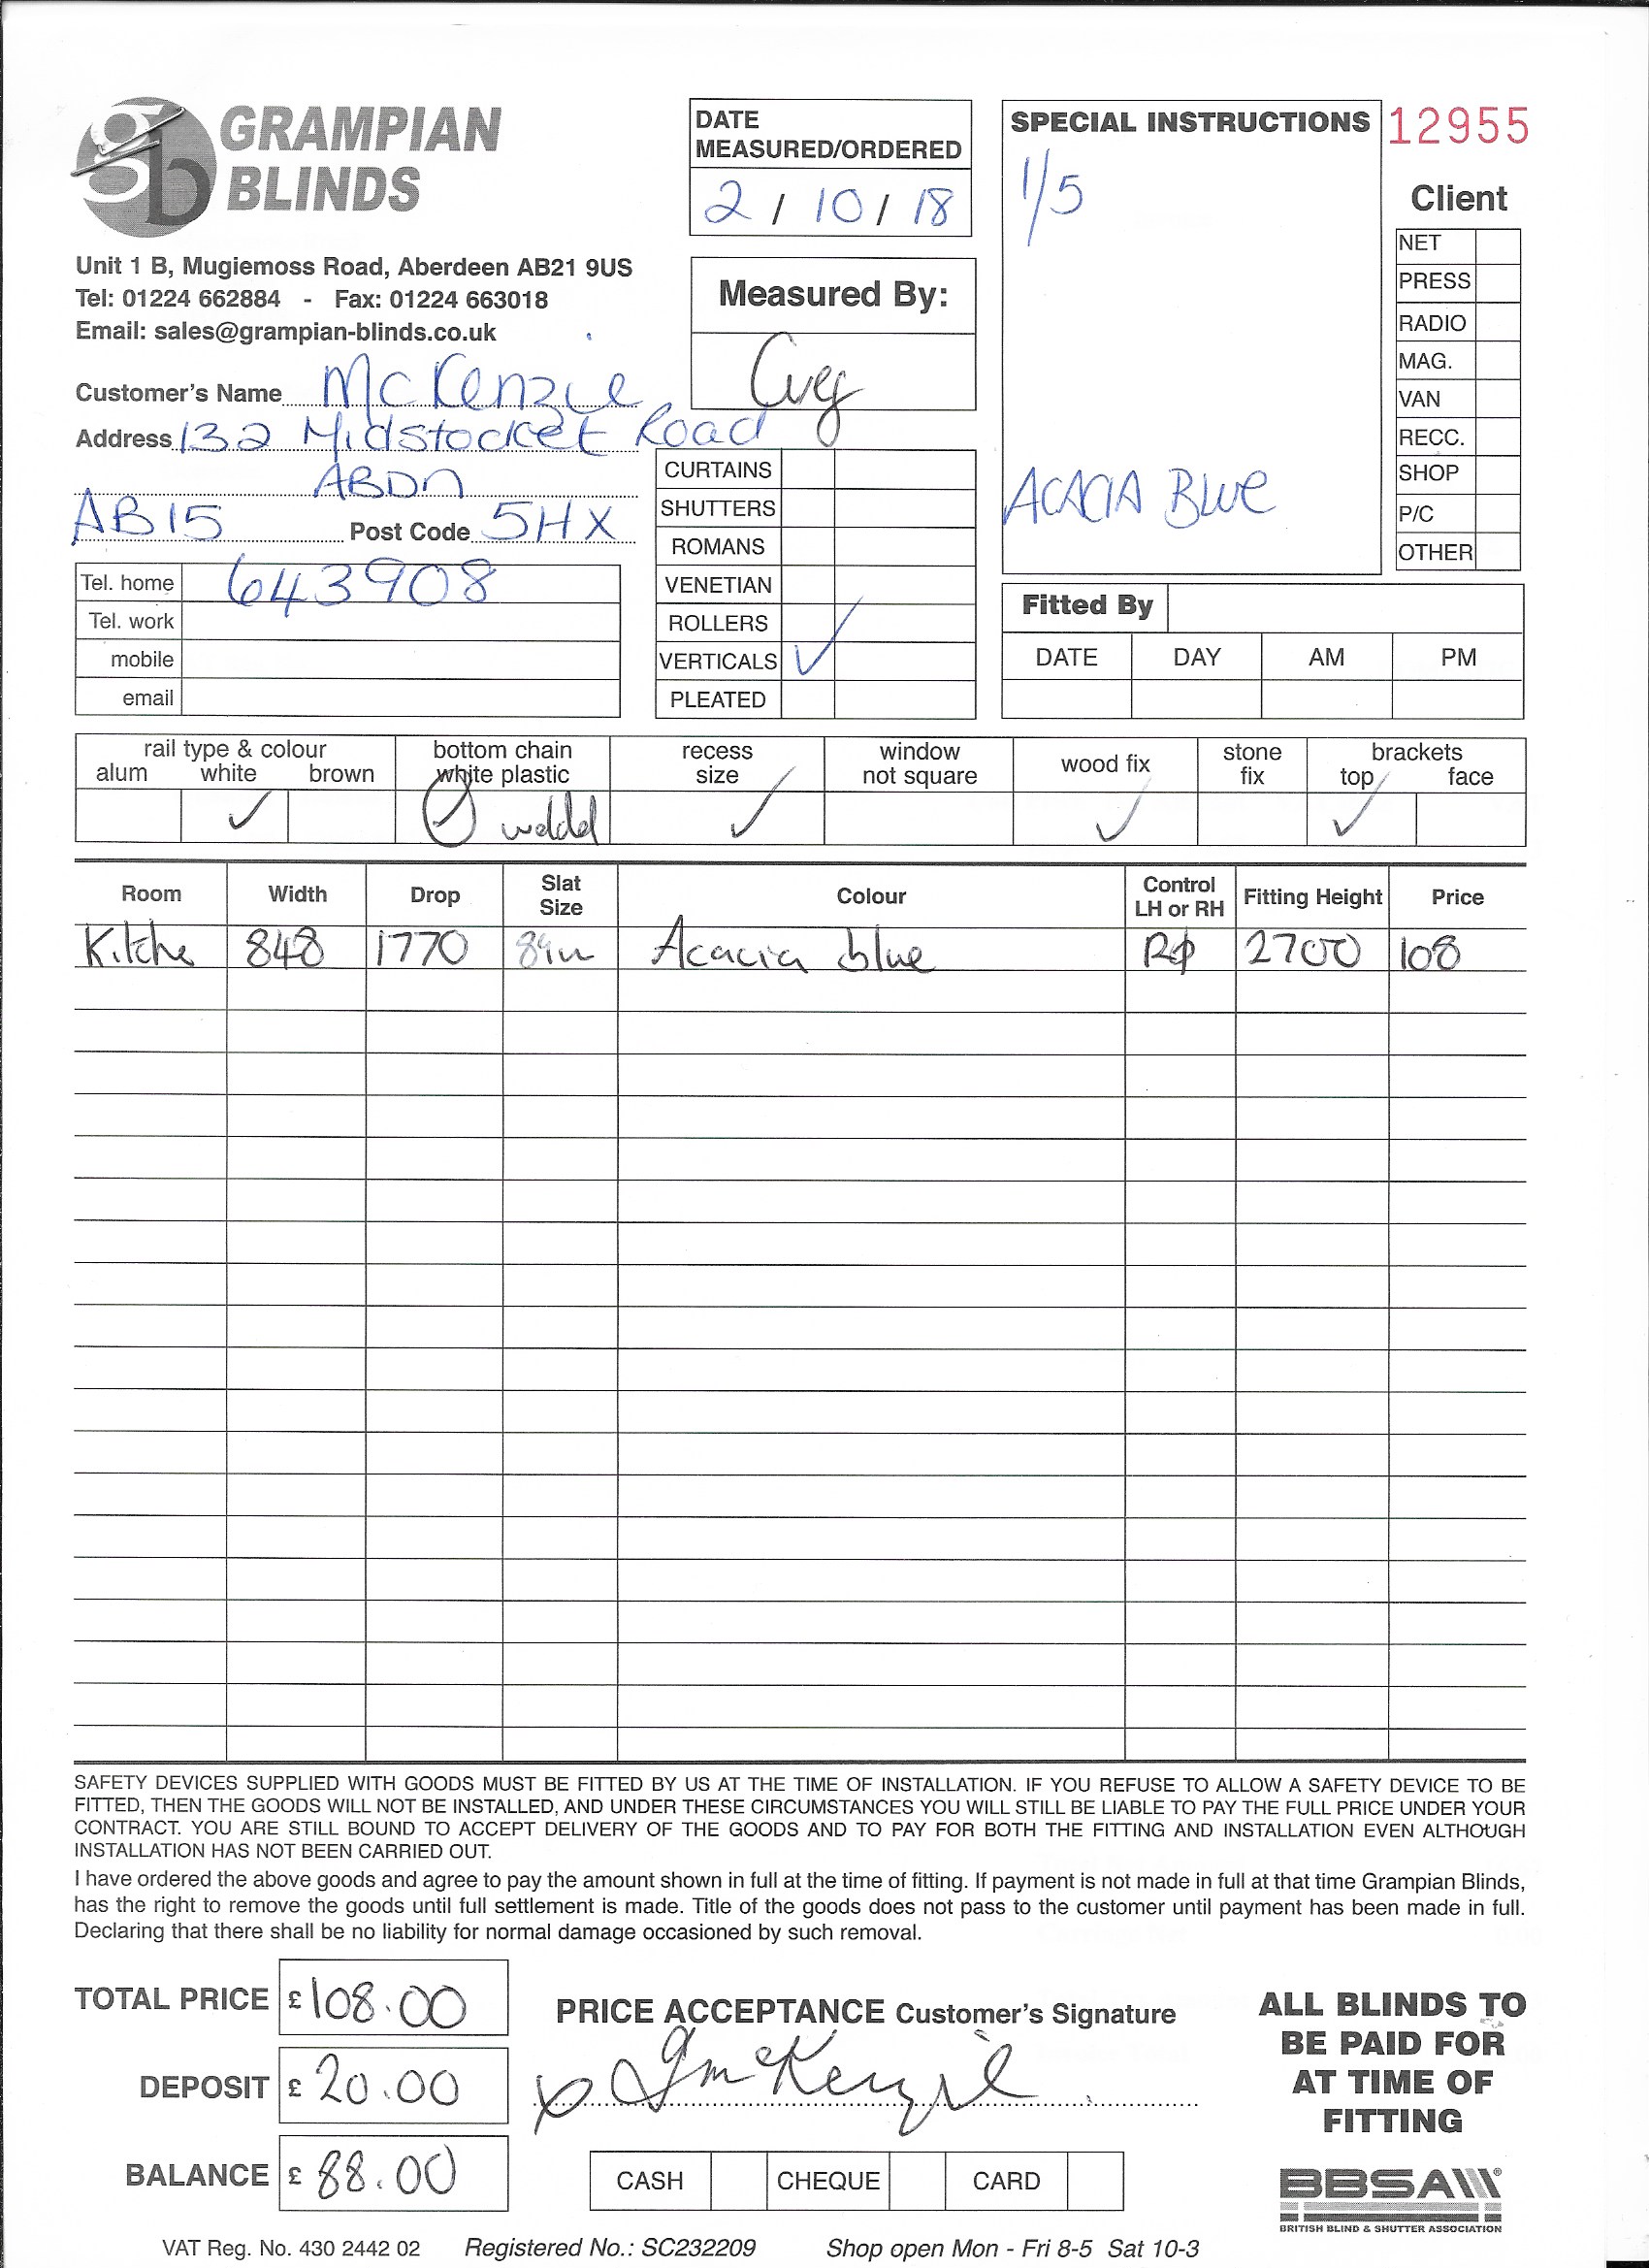 gb GRAMPIAN BLINDS
Unit 1 B, Mugiemoss Road, Aberdeen AB21 9US
Tel: 01224 662884 - Fax: 01224 663018
Email: sales@grampian-blinds.co.uk
Customer's Name McKenzie
Address 132 Midstocket Road
ABDN
AB15 Post Code 5HX
Tel. home 643908
Tel. work
mobile
email
DATE
MEASURED/ORDERED
2 / 10 / 18
Measured By:
Greg
CURTAINS
SHUTTERS
ROMANS
VENETIAN
ROLLERS
VERTICALS ✓
PLEATED
SPECIAL INSTRUCTIONS
1/5
ACACIA BLUE
12955
Client
NET
PRESS
RADIO
MAG.
VAN
RECC.
SHOP
P/C
OTHER
Fitted By
DATE DAY AM PM
rail type & colour bottom chain recess window wood fix stone brackets
alum white brown white plastic size not square fix top face
✓ ✓ welded ✓ ✓ ✓
Room Width Drop Slat Size Colour Control LH or RH Fitting Height Price
Kitche 848 1770 89m Acacia blue 2700 108
SAFETY DEVICES SUPPLIED WITH GOODS MUST BE FITTED BY US AT THE TIME OF INSTALLATION. IF YOU REFUSE TO ALLOW A SAFETY DEVICE TO BE
FITTED, THEN THE GOODS WILL NOT BE INSTALLED, AND UNDER THESE CIRCUMSTANCES YOU WILL STILL BE LIABLE TO PAY THE FULL PRICE UNDER YOUR
CONTRACT. YOU ARE STILL BOUND TO ACCEPT DELIVERY OF THE GOODS AND TO PAY FOR BOTH THE FITTING AND INSTALLATION EVEN ALTHOUGH
INSTALLATION HAS NOT BEEN CARRIED OUT.
I have ordered the above goods and agree to pay the amount shown in full at the time of fitting. If payment is not made in full at that time Grampian Blinds,
has the right to remove the goods until full settlement is made. Title of the goods does not pass to the customer until payment has been made in full.
Declaring that there shall be no liability for normal damage occasioned by such removal.
TOTAL PRICE £ 108.00
DEPOSIT £ 20.00
BALANCE £ 88.00
PRICE ACCEPTANCE Customer's Signature
x J McKenzie
CASH CHEQUE CARD
ALL BLINDS TO
BE PAID FOR
AT TIME OF
FITTING
BBSA
BRITISH BLIND & SHUTTER ASSOCIATION
VAT Reg. No. 430 2442 02 Registered No.: SC232209 Shop open Mon - Fri 8-5 Sat 10-3